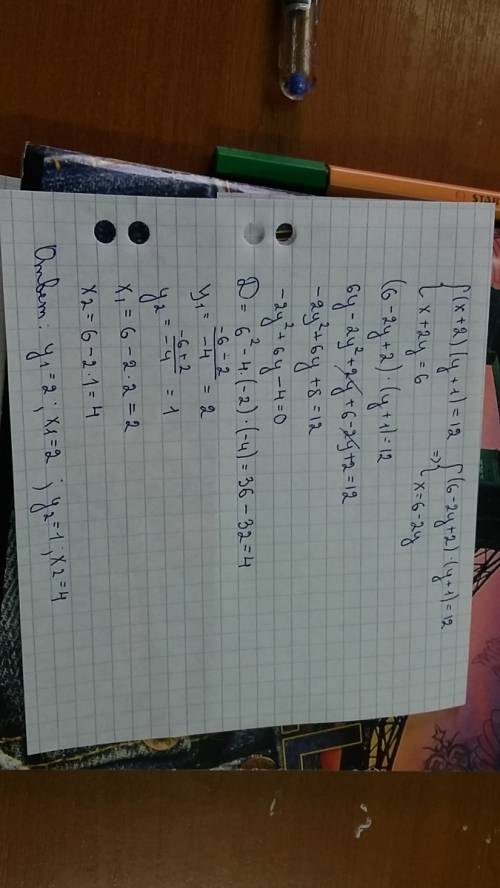 {(x+2)(y+1)=12 {(6-2y+2)·(y+1)=12
{x+2y=6 => {x=6-2y
(6-2y+2)·(y+1)=12
6y-2y²+2y+6-2y+2=12
-2y²+6y+8=12
-2y²+6y-4=0
D=6²-4·(-2)·(-4)=36-32=4
y₁=(-6-2)/(-4)=2
y₂=(-6+2)/(-4)=1
x₁=6-2·2=2
x₂=6-2·1=4
Ответ: y₁=2; x₁=2; y₂=1; x₂=4
STAB